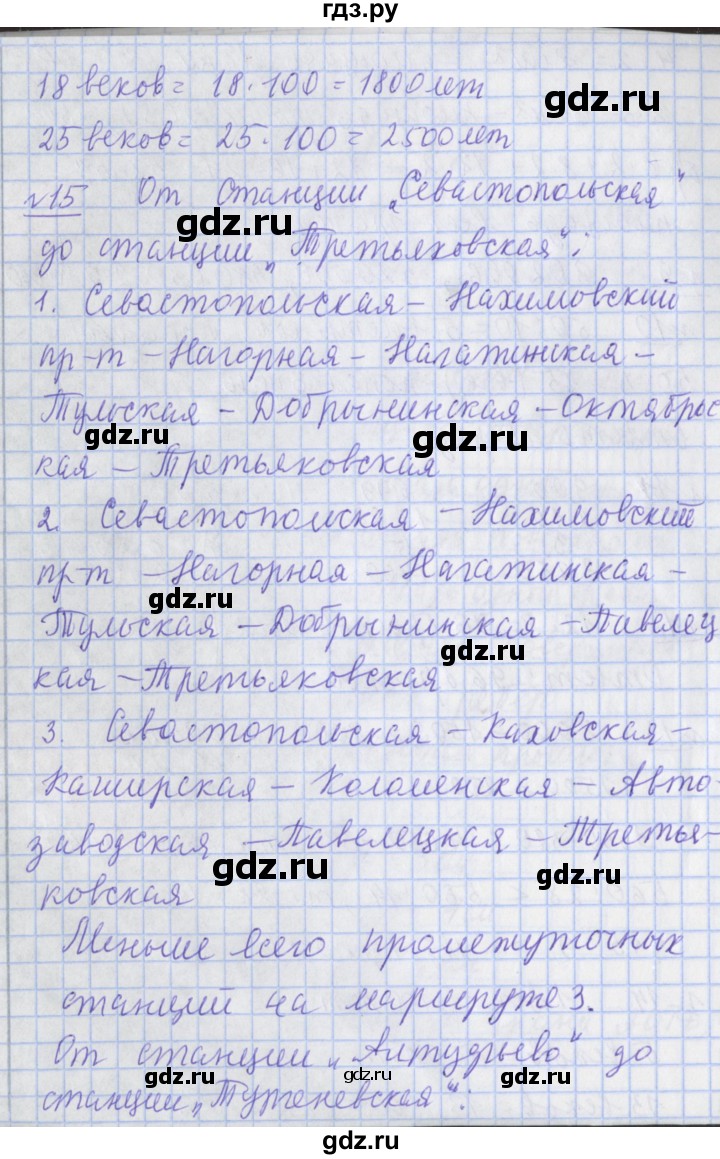 гдз.ру
18 веков = 18 · 100 = 1800 лет
gdz.ru
25 веков = 25 · 100 = 2500 лет
№15 От станции „Севастопольская“
gdz.ru
до станции „Третьяковская“:
gdz.ru
1. Севастопольская – Нахимовский
пр-т – Нагорная – Нагатинская –
Тульская – Добрынинская – Октябрьс
gdz.ru
gdz.ru
кая – Третьяковская
2. Севастопольская – Нахимовский
пр-т – Нагорная – Нагатинская –
gdz.ru
Тульская – Добрынинская – Павелец
gdz.ru
кая – Третьяковская
3. Севастопольская – Каховская –
Каширская – Коломенская – Авто-
заводская – Павелецкая – Третья-
gdz.ru
gdz.ru
ковская
Меньше всего промежуточных
станций на маршруте 3.
От станции „Алтудьево“ до
gdz.ru
gdz.ru
gdz.ru
станции „Тургеневская“:
gdz.ru